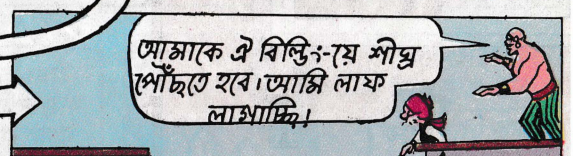 আমাকে ঐ বিল্ডিং-য়ে শীঘ্র
পৌঁছতে হবে। আমি লাফ
লাগাচ্ছি!